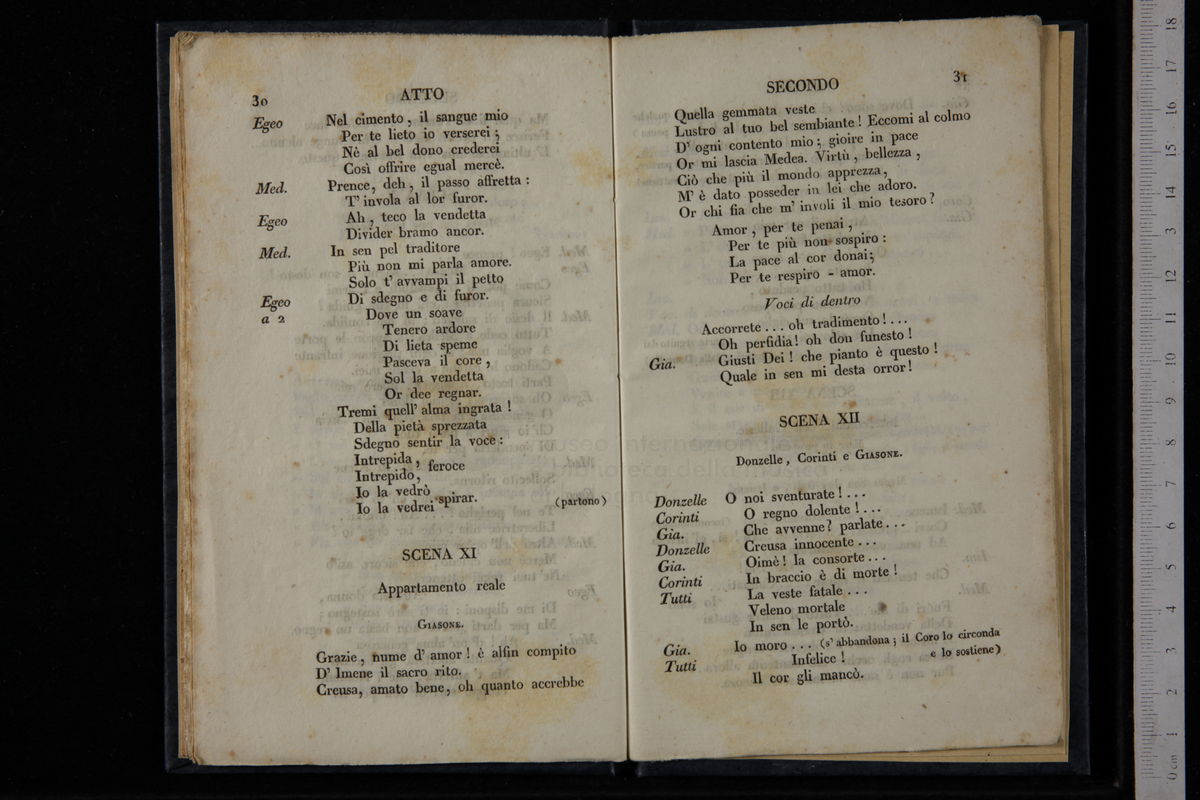 30
ATTO
Egeo Nel cimento, il sangue mio
Per te lieto io verserei;
Nè al bel dono crederei
Così offrire egual mercè.
Med. Prence, deh, il passo affretta:
T' invola al lor furor.
Egeo Ah, teco la vendetta
Divider bramo ancor.
Med. In sen pel traditore
Più non mi parla amore.
Solo t' avvampi il petto
Egeo Di sdegno e di furor.
a 2 Dove un soave
Tenero ardore
Di lieta speme
Pasceva il core,
Sol la vendetta
Or dee regnar.
Tremi quell' alma ingrata!
Della pietà sprezzata
Sdegno sentir la voce:
Intrepida,
Intrepido, feroce
Io la vedrò
Io la vedrei spirar. (partono)
SCENA XI
Appartamento reale
GIASONE.
Grazie, nume d' amor! è alfin compito
D' Imene il sacro rito.
Creusa, amato bene, oh quanto accrebbe
SECONDO
31
Quella gemmata veste
Lustro al tuo bel sembiante! Eccomi al colmo
D' ogni contento mio; gioire in pace
Or mi lascia Medea. Virtù, bellezza,
Ciò che più il mondo apprezza,
M' è dato posseder in lei che adoro.
Or chi fia che m' involi il mio tesoro?
Amor, per te penai,
Per te più non sospiro:
La pace al cor donai;
Per te respiro - amor.
Voci di dentro
Accorrete... oh tradimento!...
Oh perfidia! oh don funesto!
Gia. Giusti Dei! che pianto è questo!
Quale in sen mi desta orror!
SCENA XII
Donzelle, Corinti e GIASONE.
Donzelle O noi sventurate!...
Corinti O regno dolente!...
Gia. Che avvenne? parlate...
Donzelle Creusa innocente...
Gia. Oimè! la consorte...
Corinti In braccio è di morte!
Tutti La veste fatale...
Veleno mortale
In sen le portò.
Gia. Io moro... (s' abbandona; il Coro lo circonda
Tutti Infelice! e lo sostiene)
Il cor gli mancò.